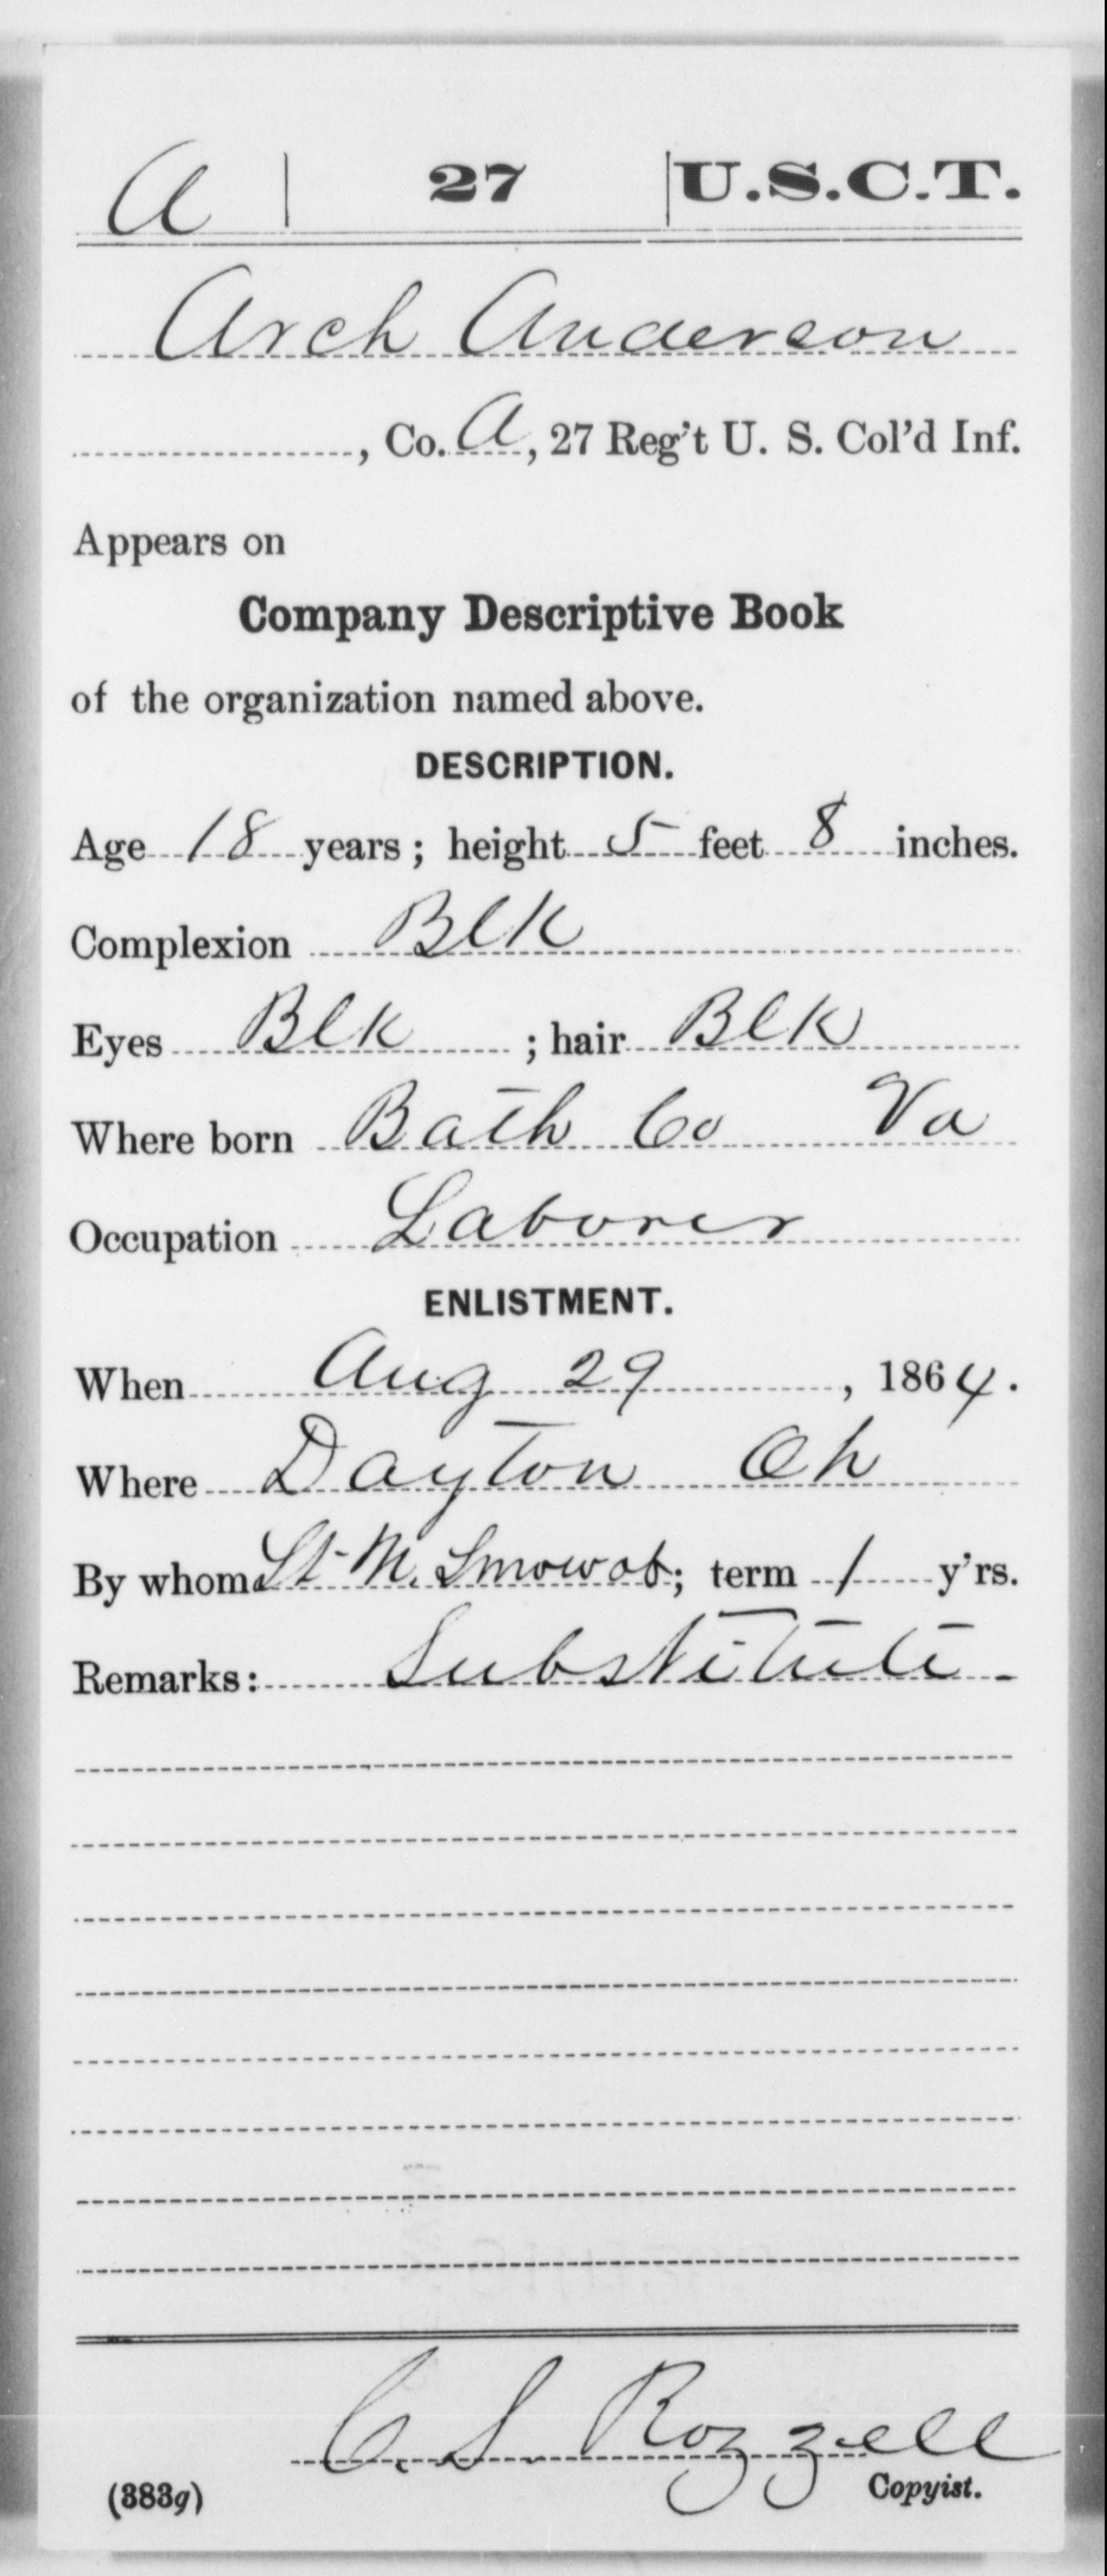 A | 27 | U.S.C.T.
Arch Anderson
, Co. A, 27 Reg't U. S. Col'd Inf.
Appears on
Company Descriptive Book
of the organization named above.
DESCRIPTION.
Age 18 years; height 5 feet 8 inches.
Complexion Blk
Eyes Blk ; hair Blk
Where born Bath Co Va
Occupation Laborer
ENLISTMENT.
When Aug 29, 1864.
Where Dayton Oh
By whom Lt M. ; term 1 y'rs.
Remarks: Substitute -
C. S. Rozzell
(383g) Copyist.